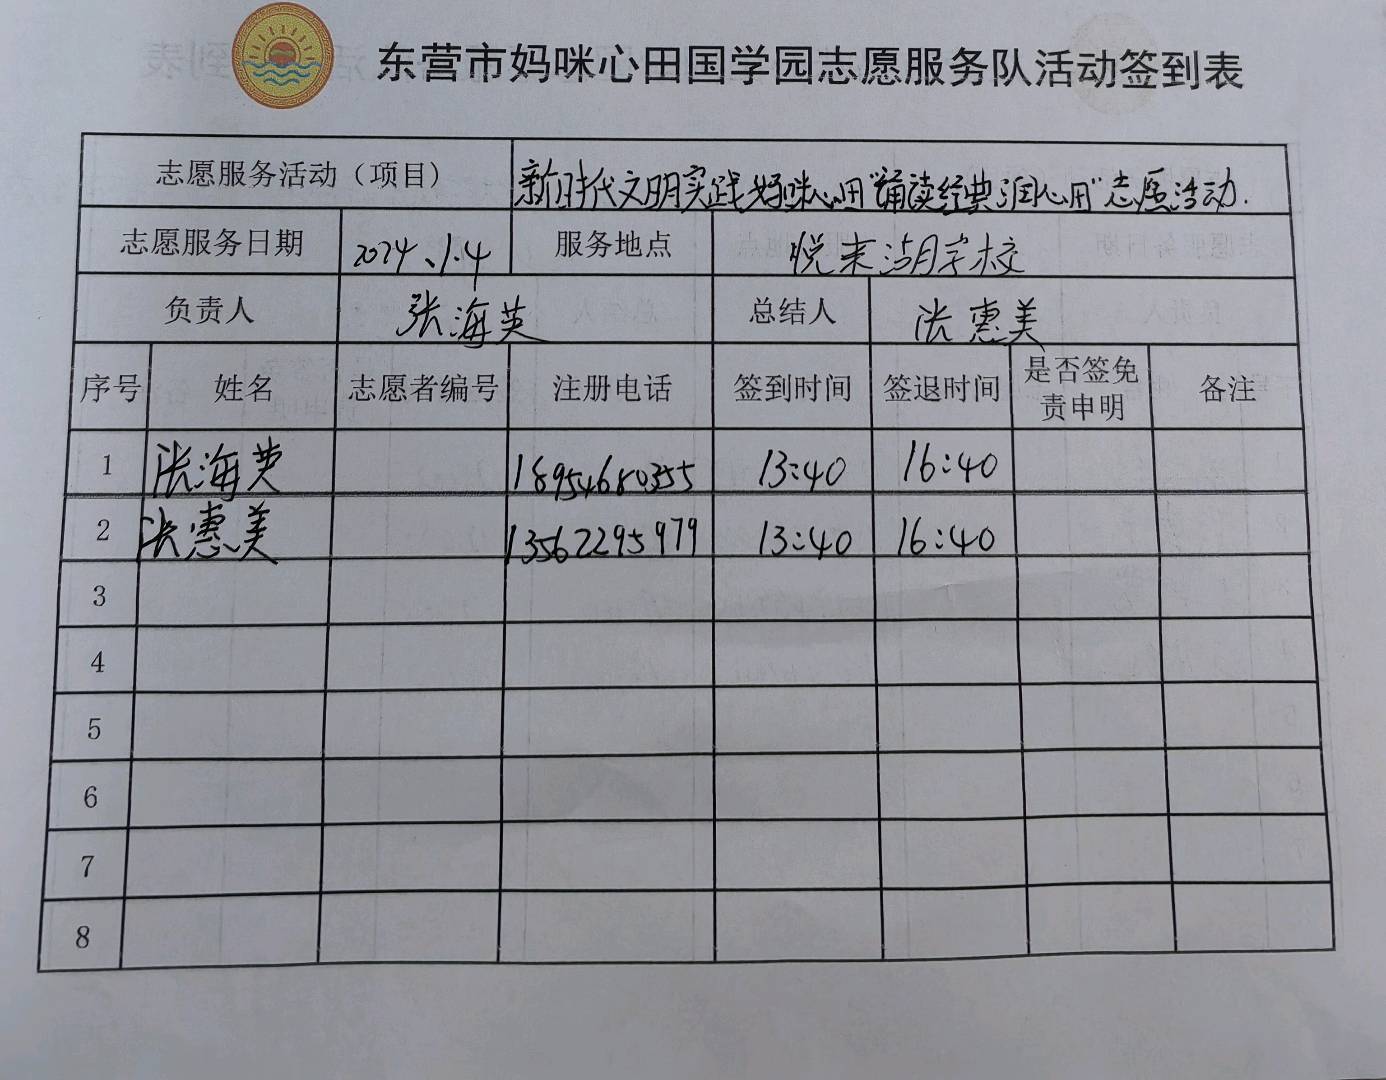 东营市妈咪心田国学园志愿服务队活动签到表
志愿服务活动（项目） 新时代文明实践妈咪心田“诵读经典润心田”志愿活动.
志愿服务日期 2024、1.4 服务地点 悦来湖学校
负责人 张海英 总结人 张惠美
序号 姓名 志愿者编号 注册电话 签到时间 签退时间 是否签免责申明 备注
1 张海英 18954680355 13:40 16:40
2 张惠美 13562295979 13:40 16:40
3
4
5
6
7
8